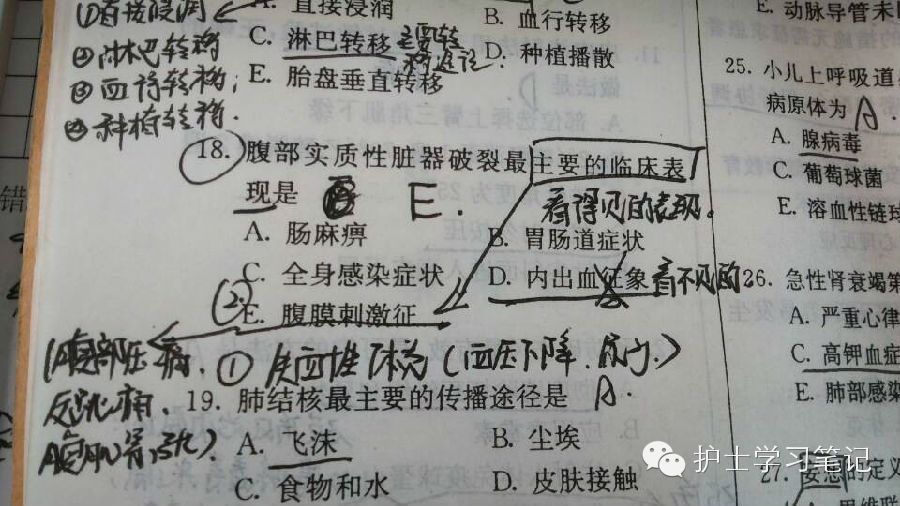 ①直接浸润
A. 直接浸润
B. 血行转移
②淋巴转移
C. 淋巴转移 主要转移途径.
D. 种植播散
③血行转移;
E. 胎盘垂直转移
④种植转移.
18. 腹部实质性脏器破裂最主要的临床表
现是 E.
看得见的表现.
A. 肠麻痹
B. 胃肠道症状
C. 全身感染症状
D. 内出血征象 看不见的
②
E. 腹膜刺激征
(腹部压痛.
① 失血性休克(血压下降.
反跳痛、
19. 肺结核最主要的传播途径是 A.
腹肌紧张)
A. 飞沫
B. 尘埃
C. 食物和水
D. 皮肤接触
E. 动脉导管未
25. 小儿上呼吸道
病原体为 A.
A. 腺病毒
C. 葡萄球菌
E. 溶血性链球
26. 急性肾衰竭第
A. 严重心律
C. 高钾血症
E. 肺部感染
27. 妄想的定义
A. 思维联
错
护士学习笔记